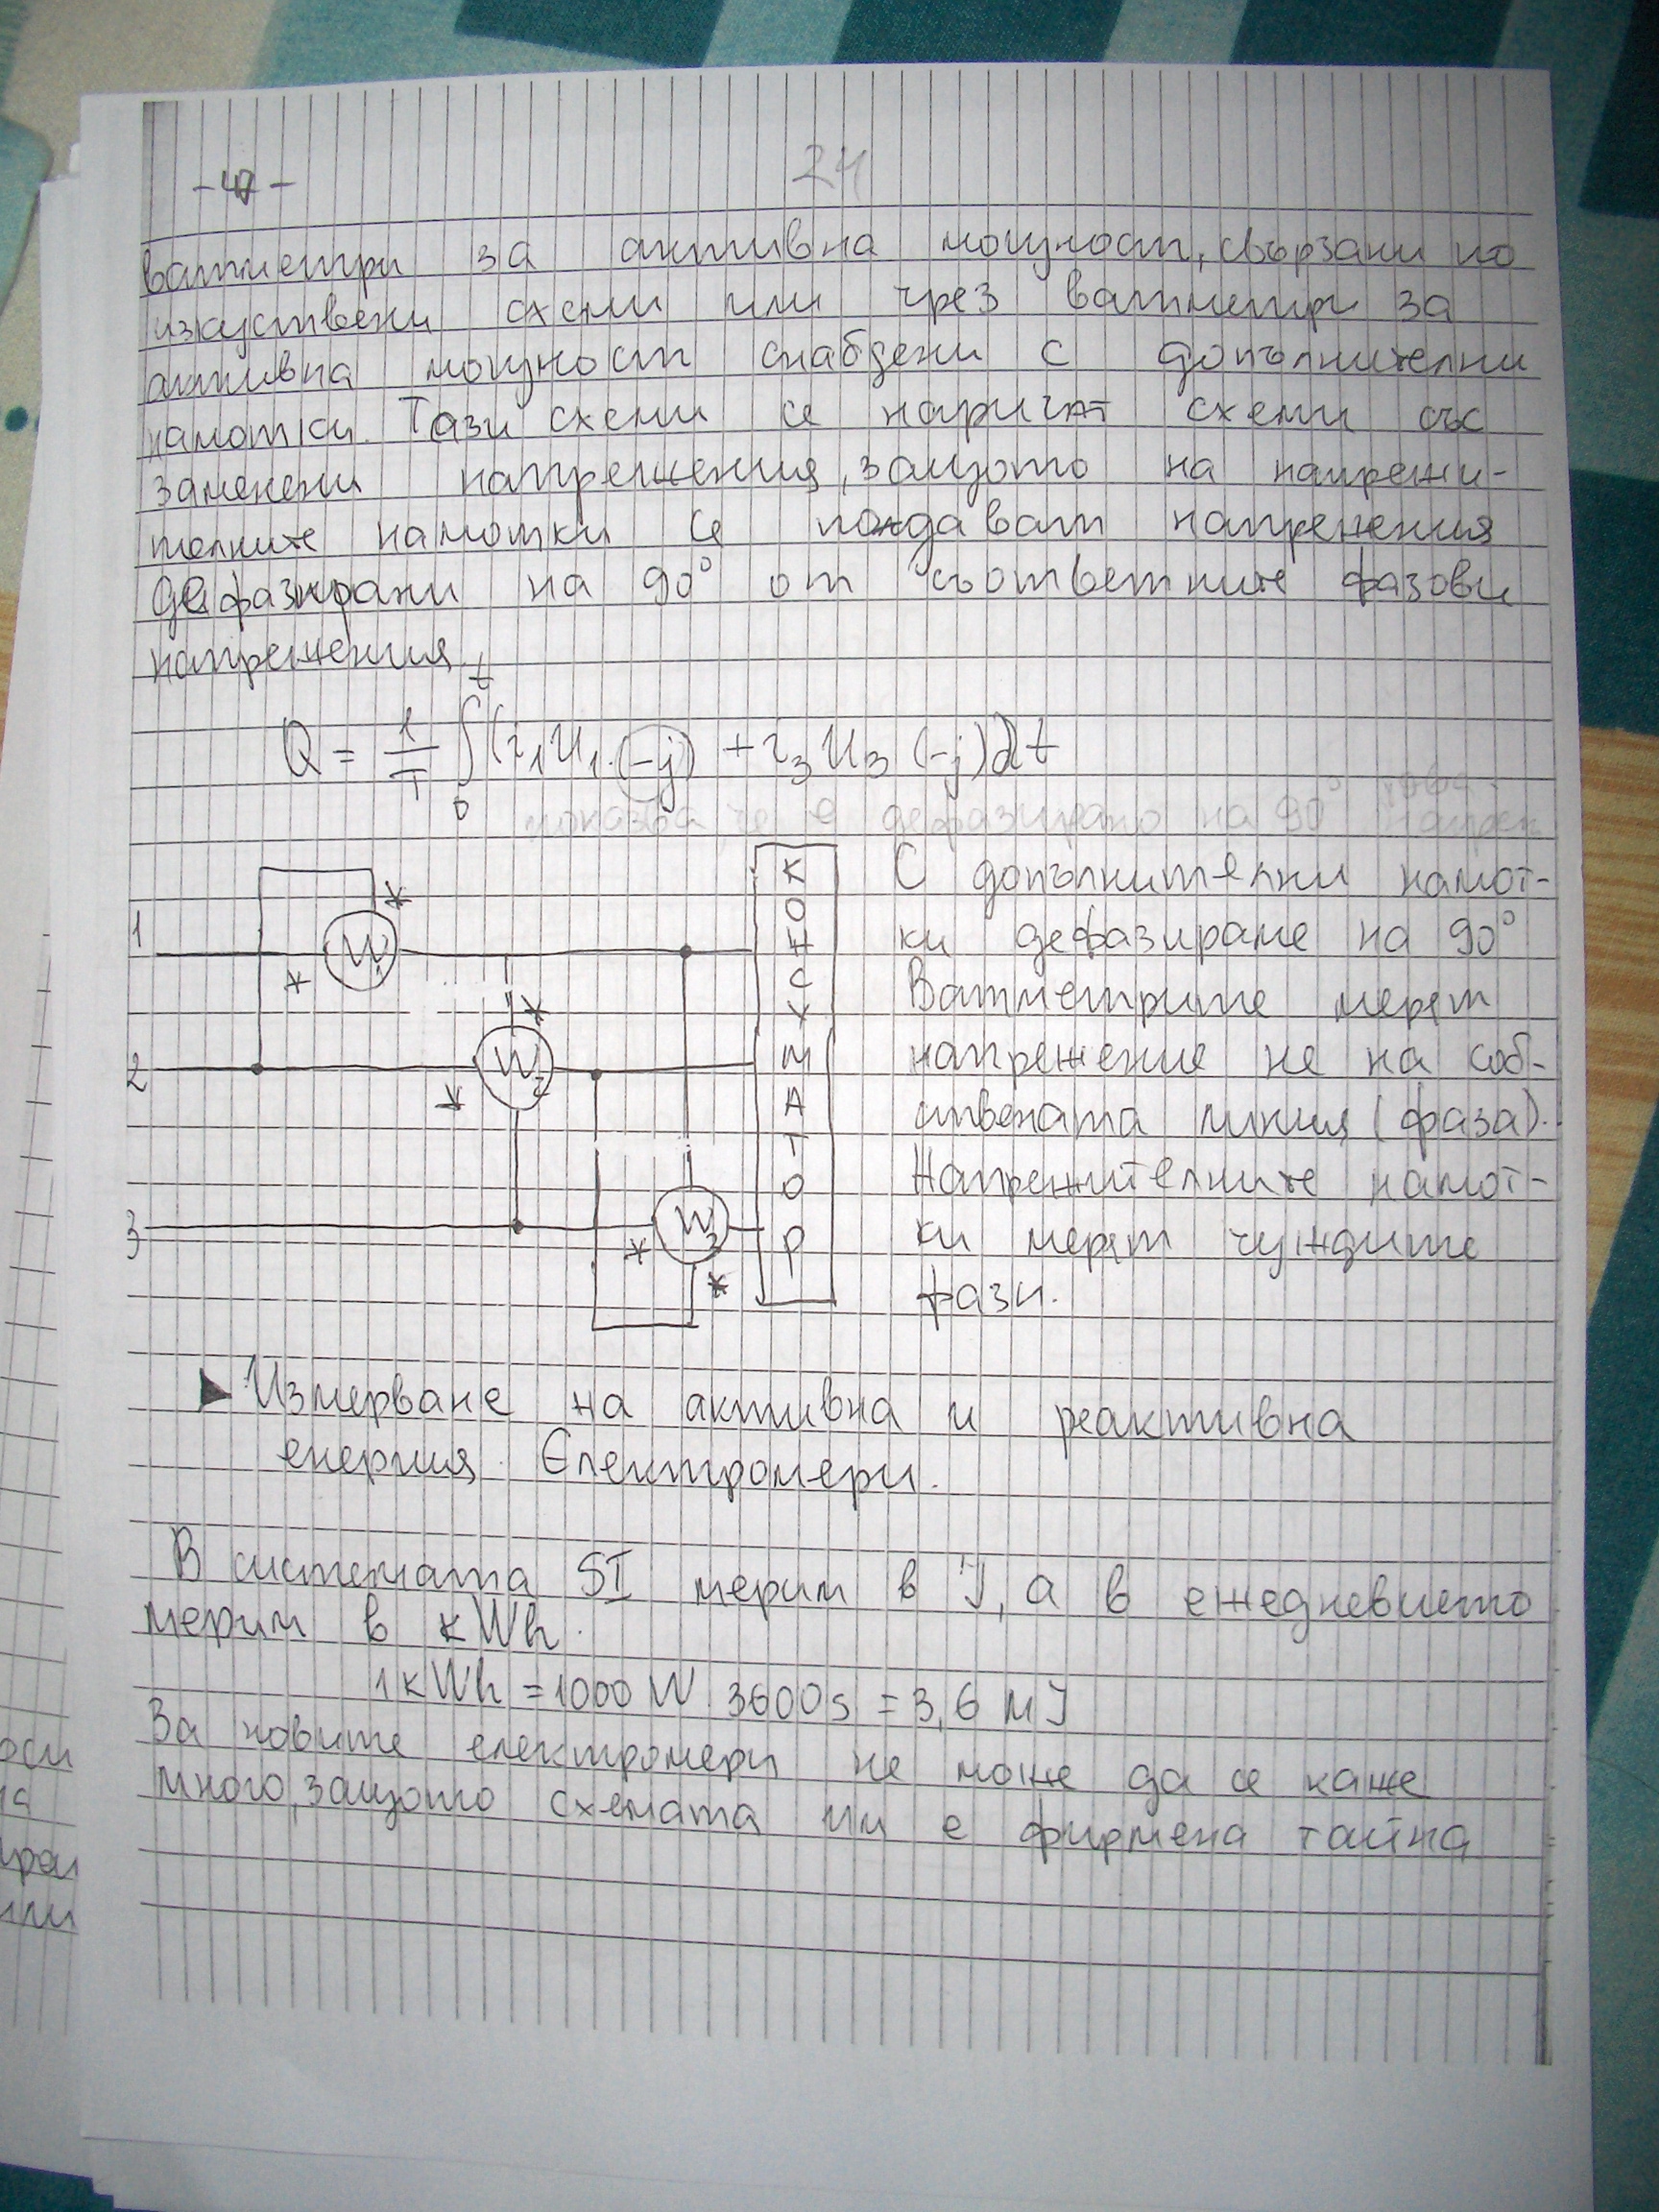 -47-
24
ватметри за активна мощност, свързани по
изкуствени схеми или чрез ватметри за
активна мощност снабдени с допълнителни
намотки. Тази схеми се наричат схеми със
заменени напрежения, защото на напрежи-
телните намотки се подават напрежения
дефазирани на 90° от съответните фазови
напрежения.
Q = 1/T ∫₀ᵗ (i₁u₁.(-j) + i₃u₃(-j))dt
показва че е дефазирано на 90° напреж
1
2
3
* W₁ *
* W₂ *
* W₃ *
КОНСУМАТОР
С допълнителни намот-
ки дефазираме на 90°
Ватметрите мерят
напрежение не на соб-
ствената линия (фаза).
Напрежителните намот-
ки мерят чуждите
фази.
▶ Измерване на активна и реактивна
енергия. Електромери.
В системата SI мерим в J, а в ежедневието
мерим в kWh.
1kWh = 1000W.3600s = 3,6 MJ
За новите електромери не може да се каже
много, защото схемата им е фирмена тайна